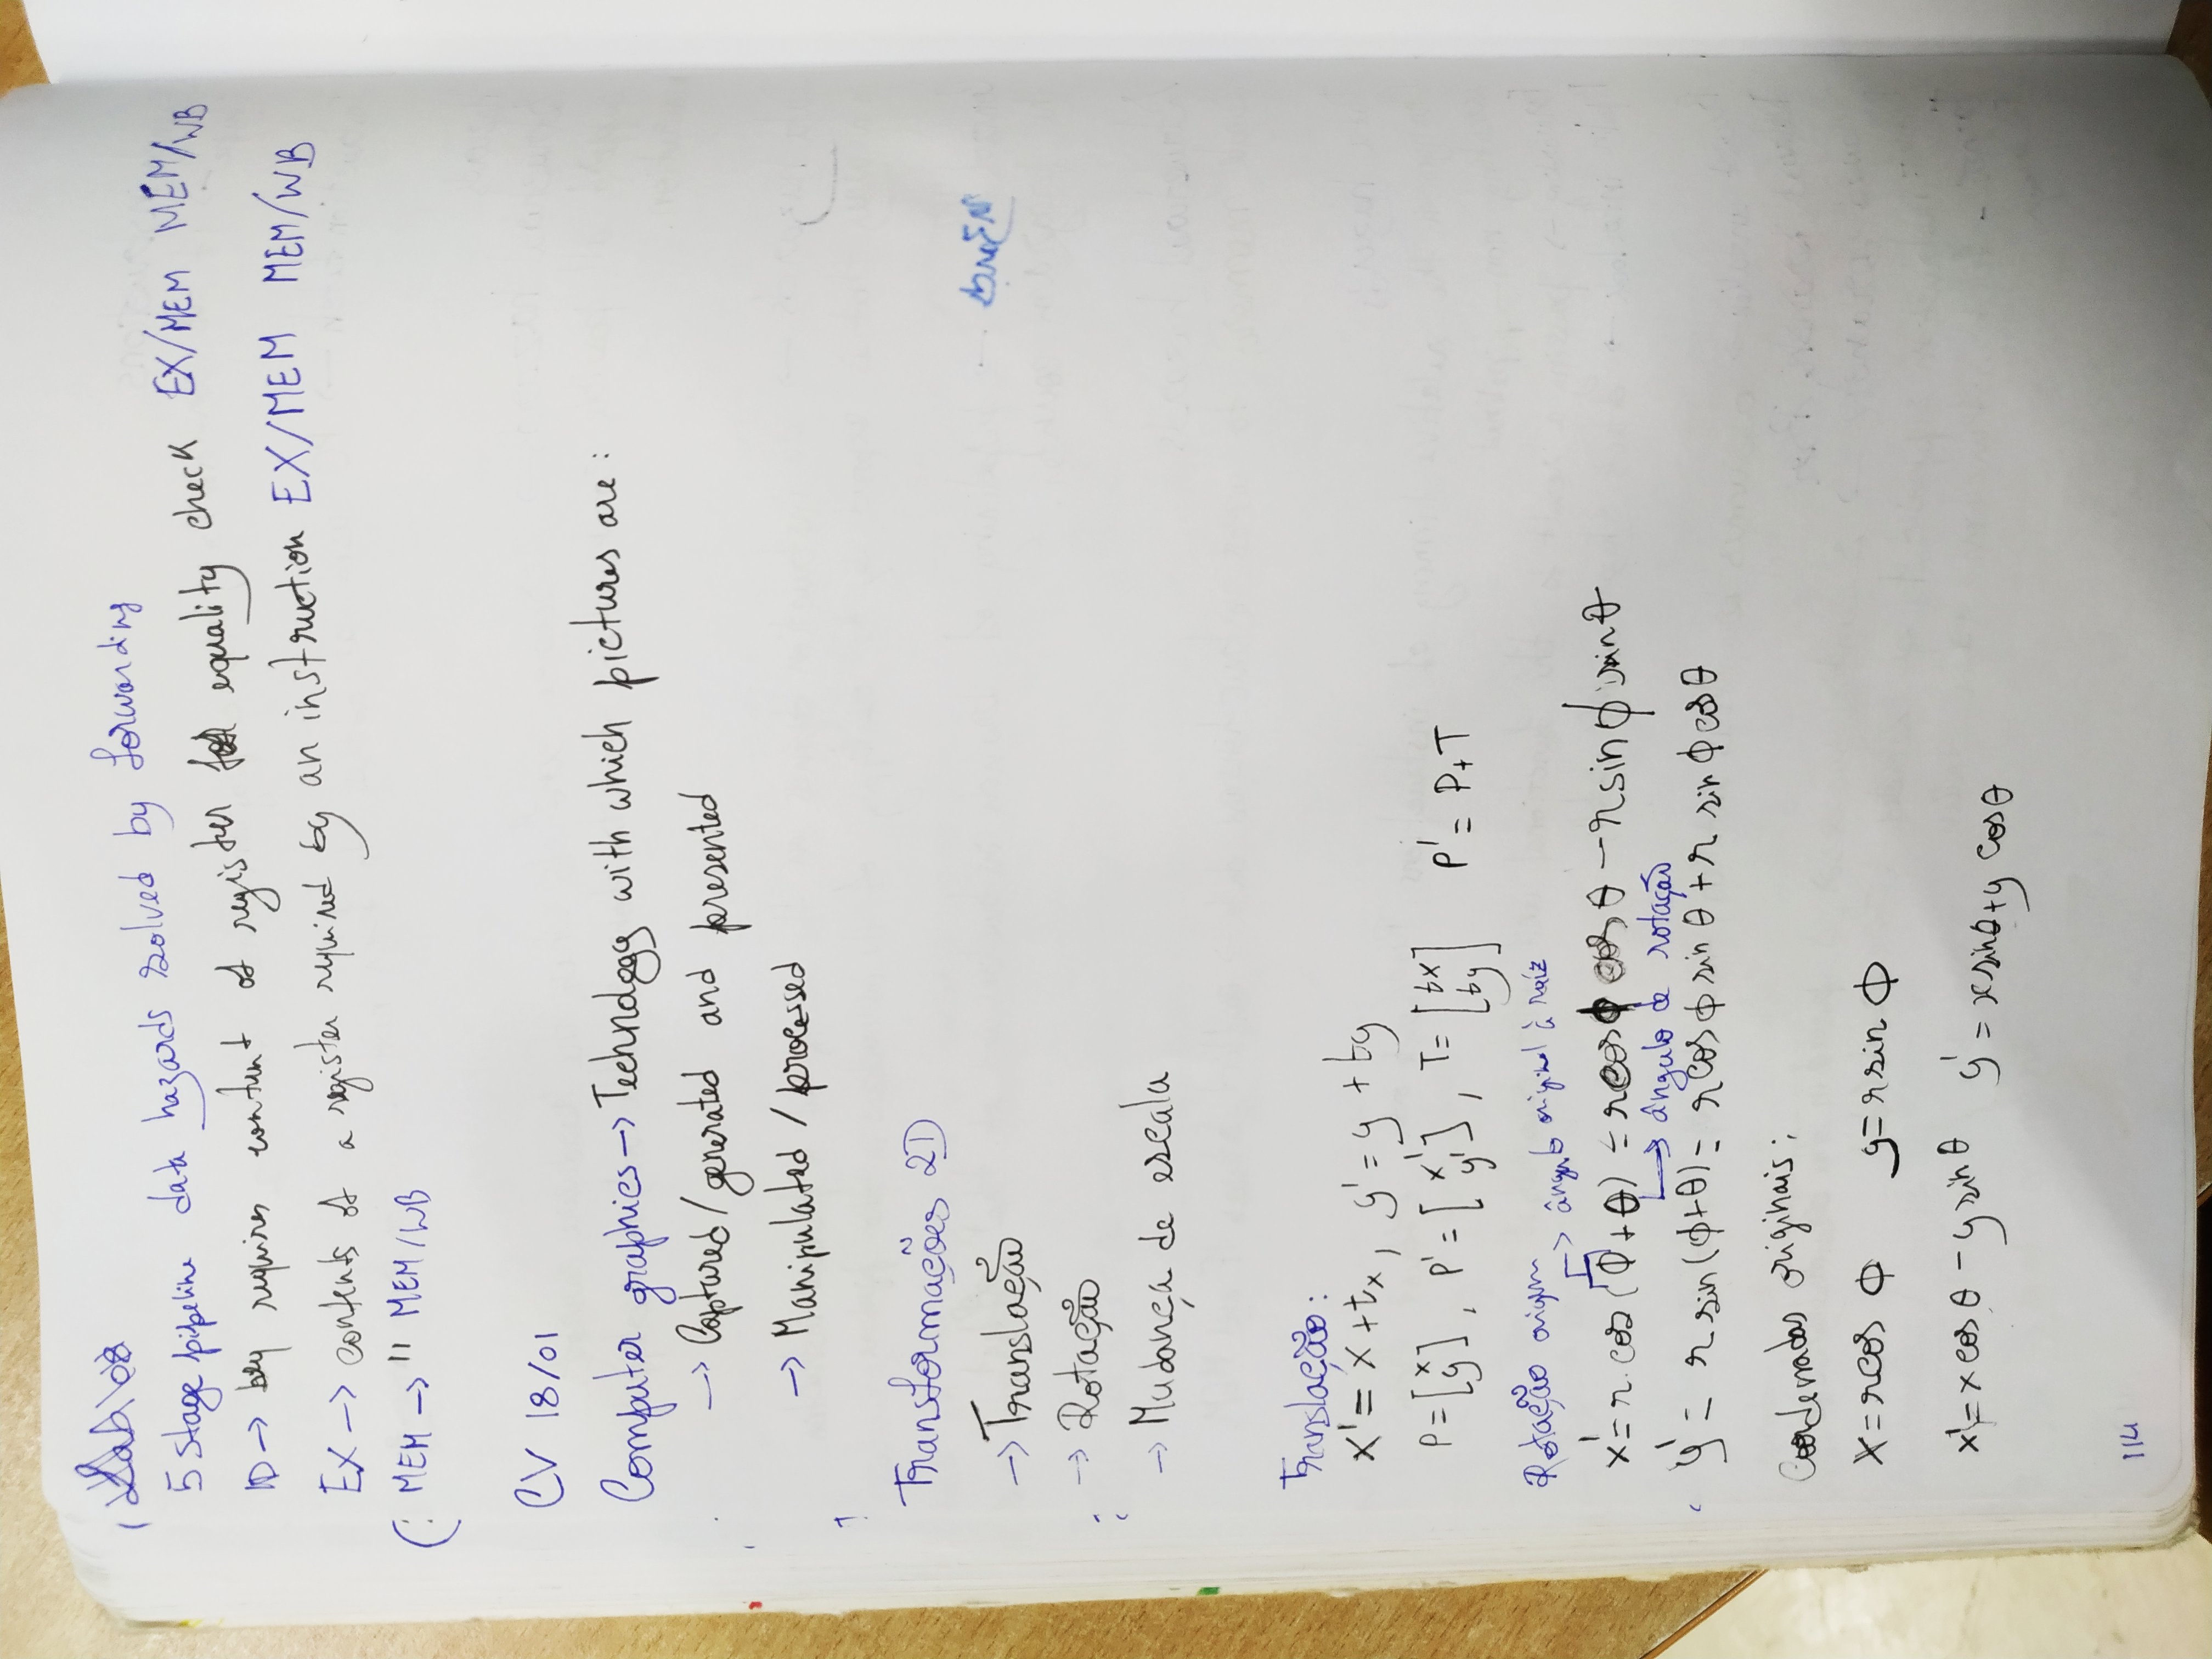 Lab 08
5 Stage pipeline data hazards solved by forwarding
ID → beq requires content of register for equality check EX/MEM MEM/WB
EX → contents of a register required by an instruction EX/MEM MEM/WB
MEM → " MEM/WB
CV 18/01
Computer graphics → Technology with which pictures are:
→ Captured/generated and presented
→ Manipulated/processed
Transformações 2D
→ Translação
→ Rotação
→ Mudança de escala
Translação:
x' = x + tx, y' = y + ty
P = [x y], P' = [x' y'], T = [tx ty] P' = P + T
Rotação origem
→ ângulo original à raíz
x' = r.cos(ϕ+θ) = r cosϕ cosθ − r sinϕ sinθ
→ ângulo de rotação
y' = r sin(ϕ+θ) = r cosϕ sinθ + r sinϕ cosθ
Coordenadas originais:
x = r cos ϕ y = r sin ϕ
x' = x cosθ − y sinθ y' = x sinθ + y cosθ
114